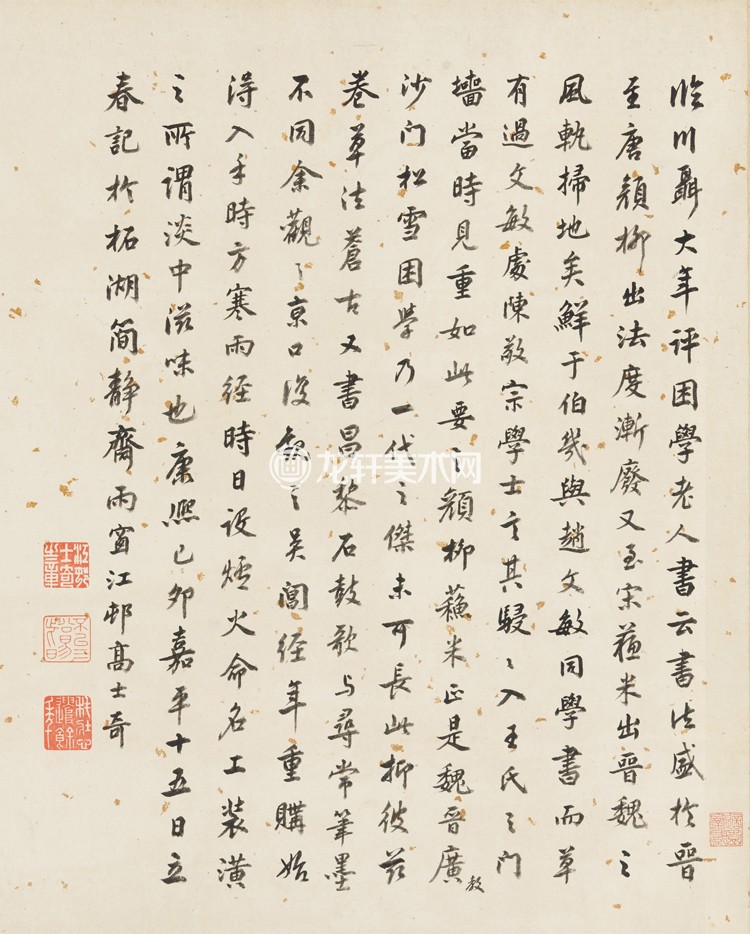 臨川聶大年評困學老人書云書法盛於晉
至唐顏柳出法度漸廢又至宋蘇米出晉魏之
風軌掃地矣鮮于伯幾與趙文敏同學書而草
有過文敏處陳敬宗學士言其駸〻入王氏之門
墻當時見重如此要之顏柳蘇米正是魏晉廣
教
沙门松雪困學乃一代之傑未可長此抑彼茲
卷草法蒼古又書昌黎石鼓歌与尋常筆墨
不同余觀之京口後觀之吳閶經年重購始
得入手時方寒雨經時日設爐火命名工装潢
之所謂淡中滋味也康熙己卯嘉平十五日立
春記於柘湖简靜齋雨窗江邨高士奇
龙轩美术网